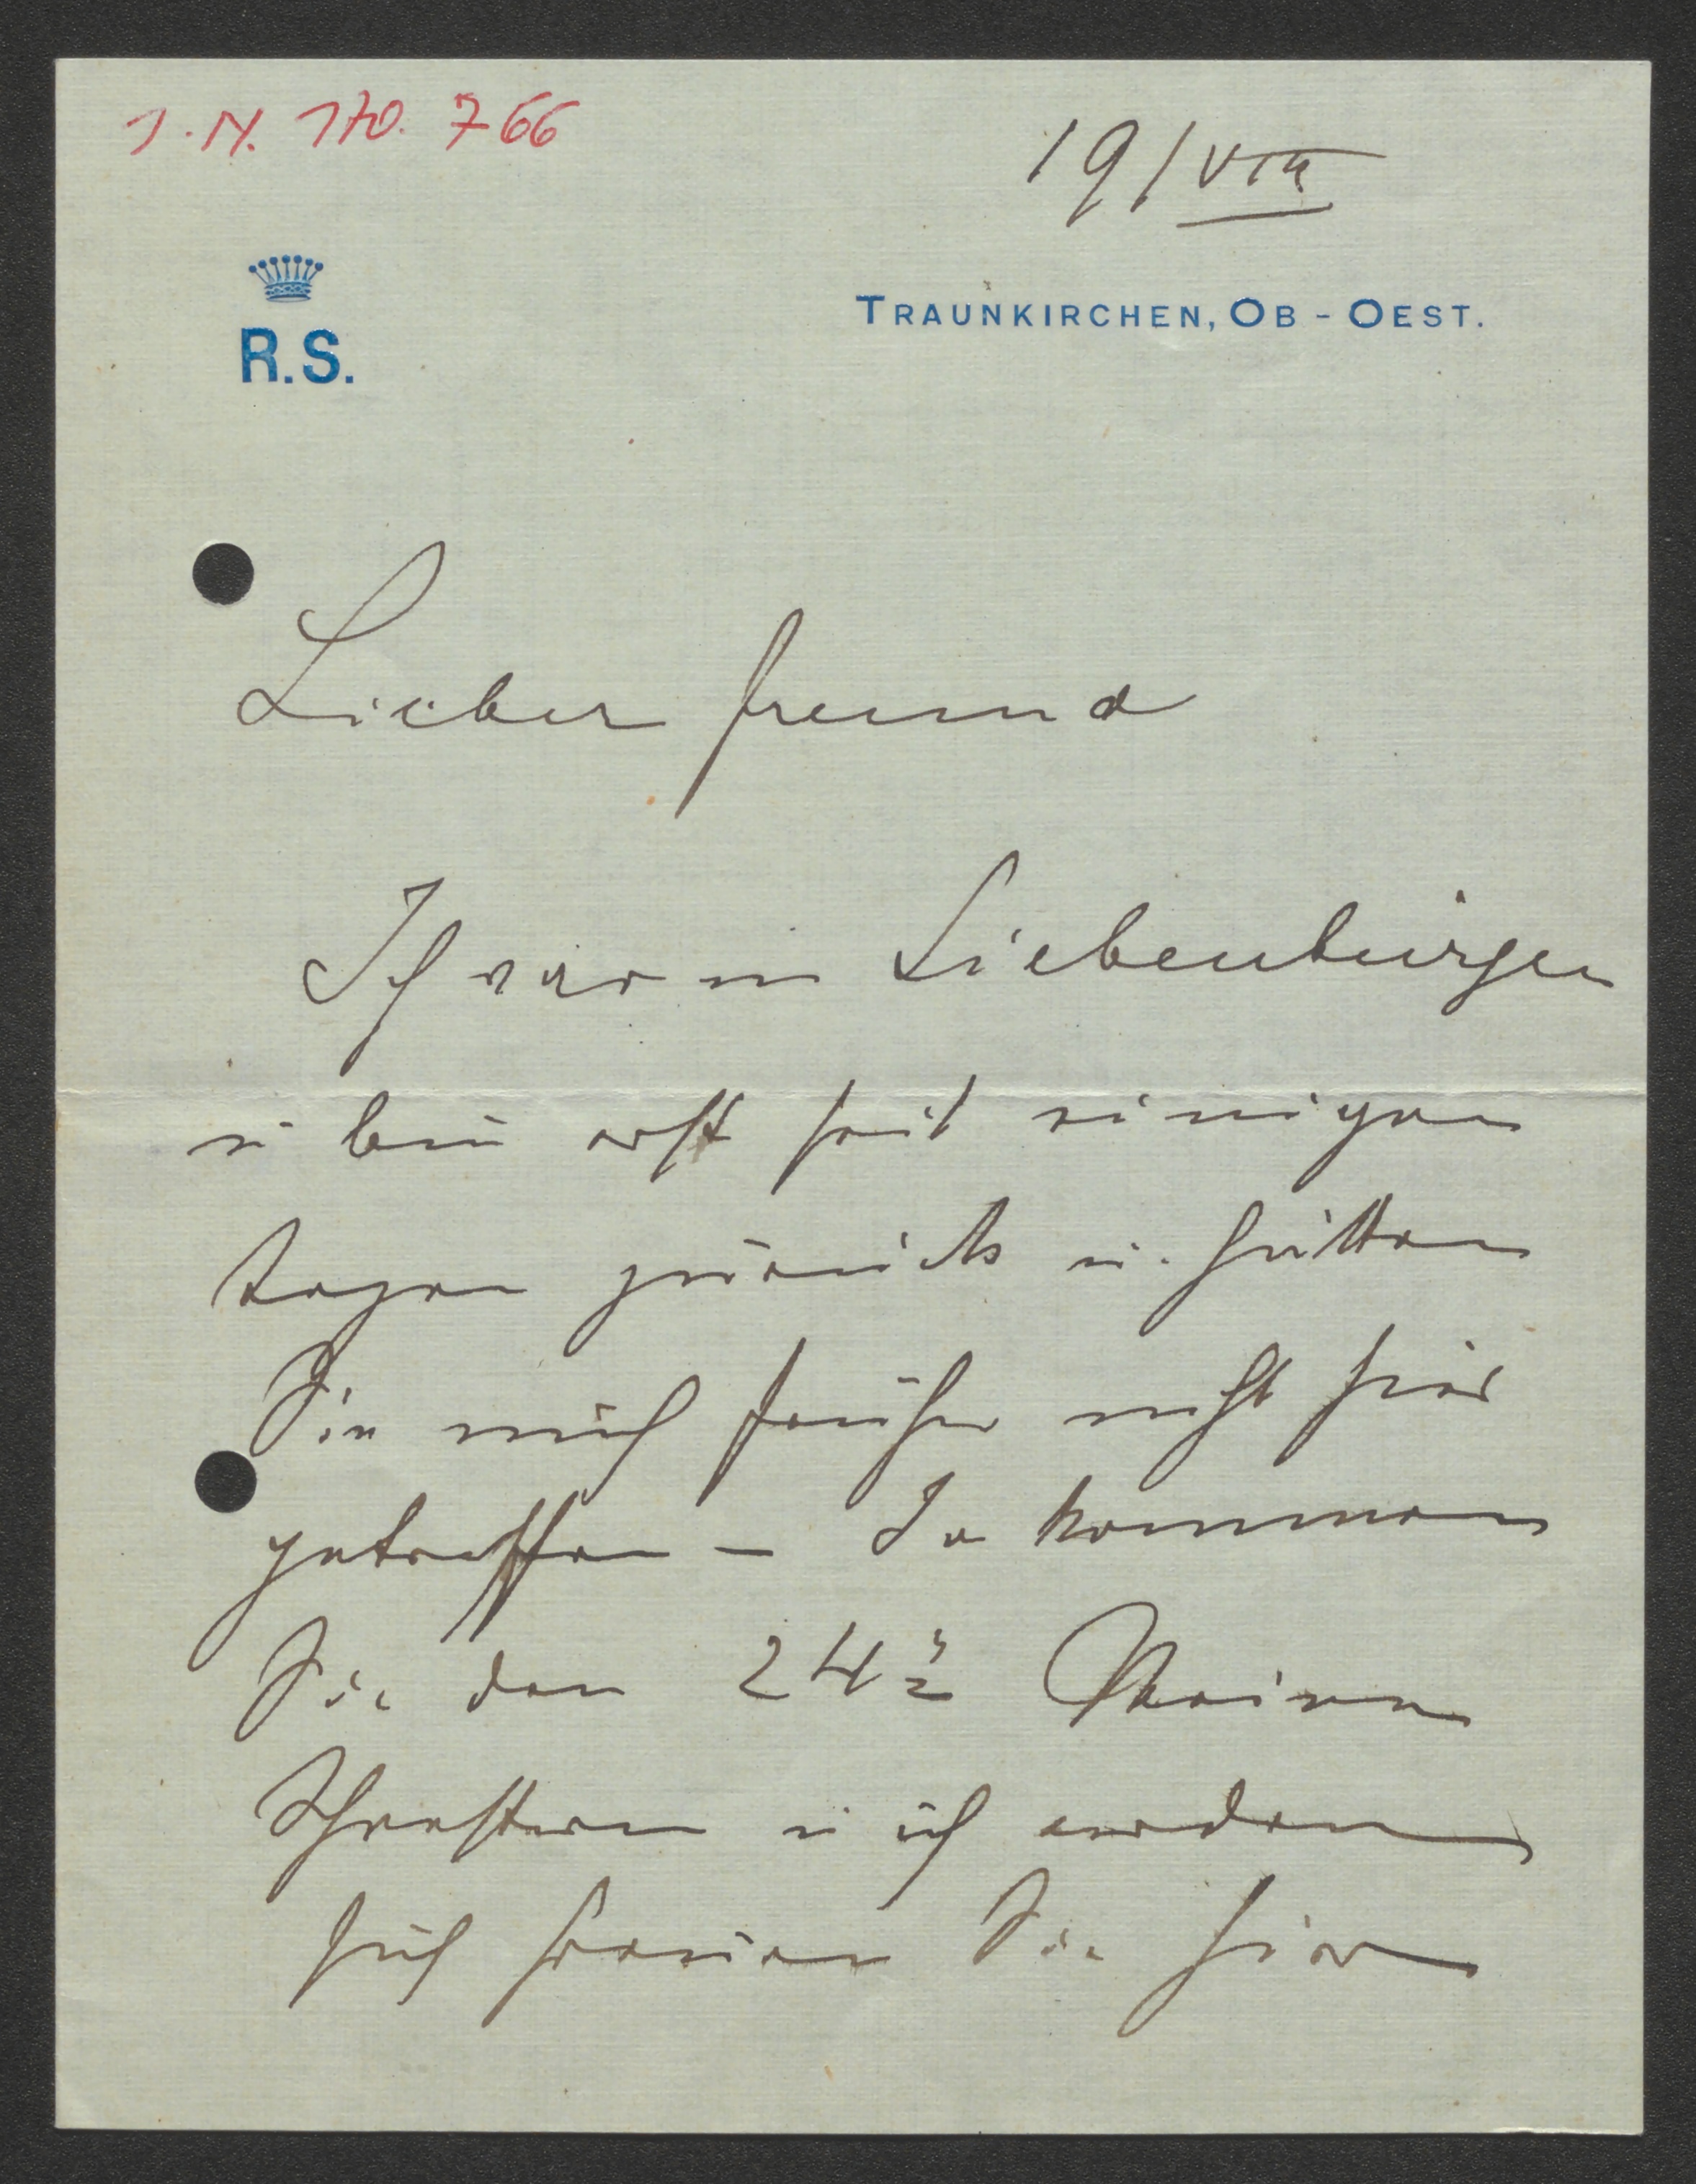 I.N. 170.766
19/VIII
R.S.
TRAUNKIRCHEN, OB-OEST.
Lieber Freund
Ich war in Siebenbürgen
u bin erst seit einigen
Tagen zurück u. hätten
Sie mich früher nicht hier
getroffen – Da kommen
Sie den 24t Meine
Schwestern u ich werden
sich freuen Sie hier